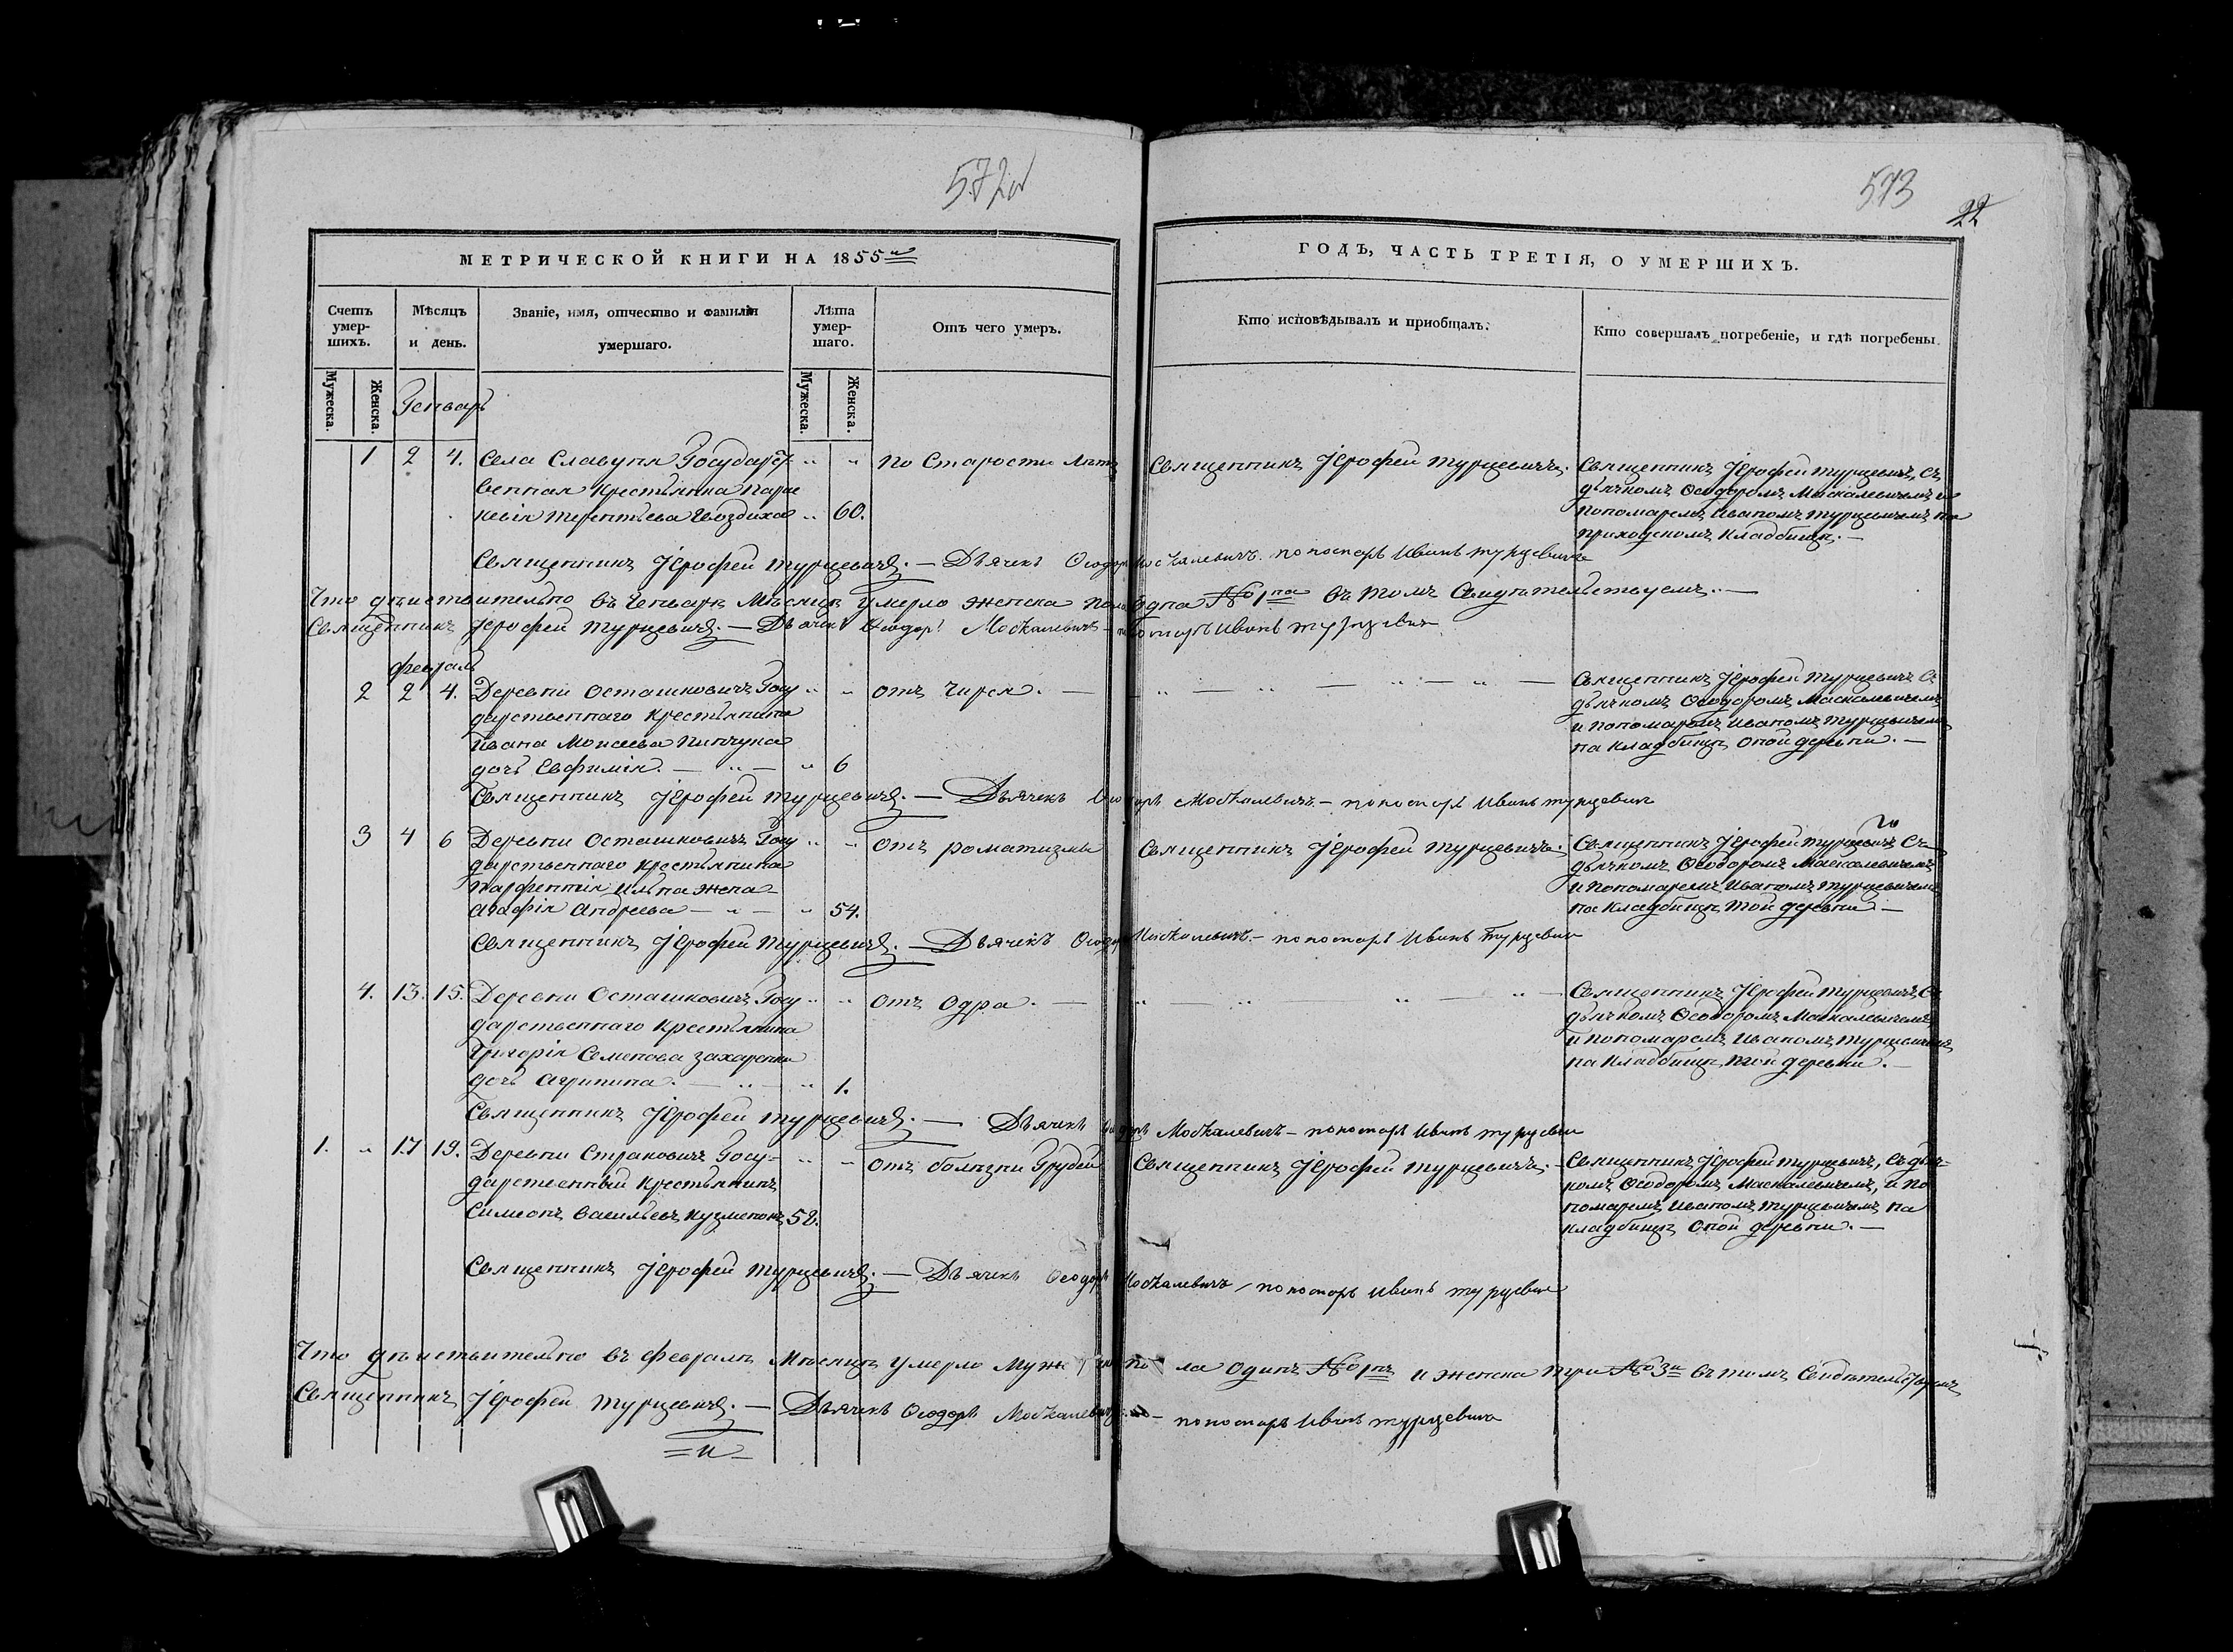 572об
573
22
МЕТРИЧЕСКОЙ КНИГИ НА 1855й
ГОДЪ, ЧАСТЬ ТРЕТІЯ, О УМЕРШИХЪ.
Счетъ умер-шихъ.
Мѣсяцъ и день.
Званіе, имя, отчество и фамилія умершаго.
Лѣта умер-шаго.
Отъ чего умеръ.
Кто исповѣдывалъ и пріобщалъ.
Кто совершалъ погребеніе, и гдѣ погребены.
Мужеска. Женска.
Мужеска. Женска.
Генварь
1 2 4. Села Славупя Государст- " " по Старости лѣтъ Священникъ Іерофей Турцевичъ. Священникъ Іерофей Турцевичъ, съ
венная Крестьянка Парас дьячкомъ Ѳеодоромъ Маскалевичемъ и
кевія Терентьева Гвоздиха " 60. пономаремъ Иваномъ Турцевичемъ на
приходскомъ Кладбищѣ. —
Священникъ Іерофей Турцевичъ. — Дьячекъ Ѳеодоръ Москалевичъ. пономарь Иванъ турцевичъ
Что дѣйствительно въ Генварѣ Мѣсяцѣ умерло женска пола одна №1на въ томъ Свидѣтельствуемъ. —
Священникъ Іерофей Турцевичъ. — Дьячекъ Ѳеодоръ Москалевичъ — пономарь Иванъ турцевичъ
Февраль
2 2 4. Деревни Осташковичъ Госу " " отъ Чирея. — " — " — " — " — Священникъ Іерофей Турцевичъ съ
дарственнаго Крестьянина дьячкомъ Ѳеодоромъ Маскалевичемъ
Ивана Моисеева Пинчука и пономаремъ Иваномъ Турцевичемъ
дочь Евфимія. — " — " 6 на кладбищѣ оной деревни. —
Священникъ Іерофей Турцевичъ. — Дьячекъ Ѳеодоръ Москалевичъ — пономарь Иванъ турцевичъ
3 4 6 Деревни Осташковичъ Госу " " отъ роматизмы Священникъ Іерофей Турцевичъ. Священникъ Іерофей Турцевичъ съ
дарственнаго крестьянина дьячкомъ Ѳеодоромъ Маскалевичемъ
Парфентія Ильина жена и пономаремъ Иваномъ Турцевичемъ
Агафія Андреева — " — " 54. на кладбищѣ той деревни —
Священникъ Іерофей Турцевичъ. — Дьячекъ Ѳеодоръ Москалевичъ. — пономарь Иванъ Турцевичъ
4. 13. 15. Деревни Осташковичъ Госу " " отъ Одра. — " — " " — " — Священникъ Іерофей Турцевичъ, съ
дарственнаго Крестьянина дьячкомъ Ѳеодоромъ Маскалевичемъ
Григорія Семенова Захаренки и пономаремъ Иваномъ Турцевичемъ
дочь Агрипина. — " — " 1. на Кладбищѣ той деревни. —
Священникъ Іерофей Турцевичъ. — Дьячекъ Ѳеодоръ Москалевичъ — пономарь Иванъ турцевичъ
1. " 17 19. Деревни Страковичъ Госу- " " отъ болѣзни Грудей Священникъ Іерофей Турцевичъ. — Священникъ Іерофей Турцевичъ, съ дьяч-
дарственный Крестьянинъ комъ Ѳеодоромъ Маскалевичемъ, и по
Симеонъ Васильевъ Кузменокъ 52. номаремъ Иваномъ Турцевичемъ на
кладбищѣ оной деревни. —
Священникъ Іерофей Турцевичъ. — Дьячекъ Ѳеодоръ Москалевичъ / пономарь Иванъ турцевичъ
Что дѣйствительно въ февралѣ Мѣсяцѣ умерло Муж по ла одинъ №1нъ и женска три №3и въ томъ Свидѣтельствуемъ
Священникъ Іерофей Турцевичъ. — Дьячекъ Ѳеодоръ Москалевичъ — пономарь Иванъ турцевичъ